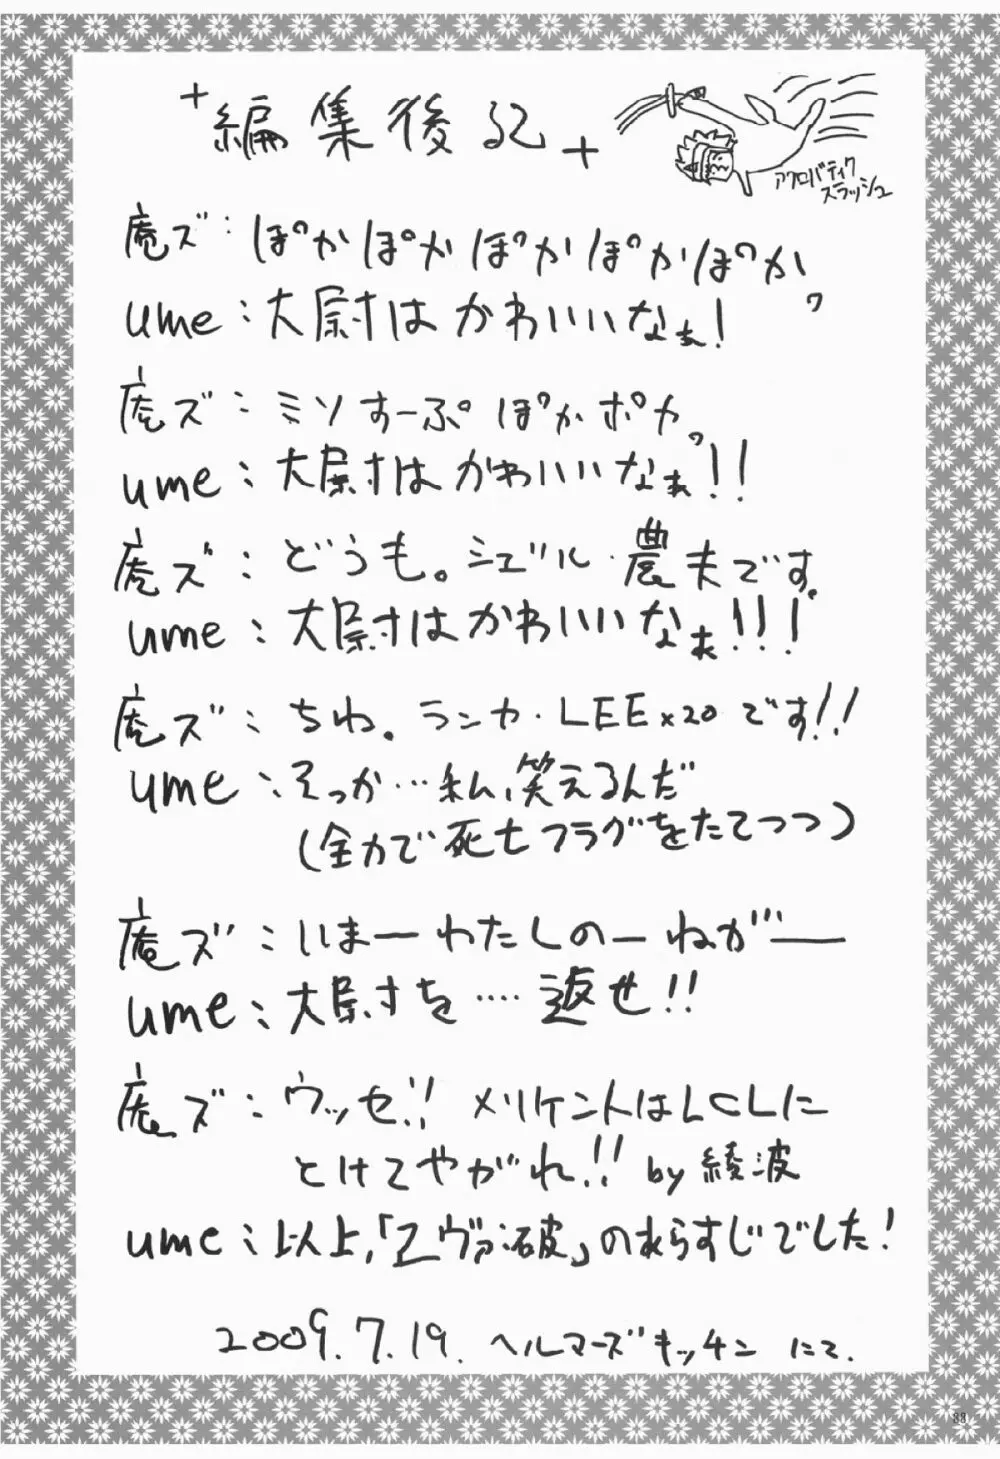 +編集後記+
アクロバティク
スラッシュ
庵ズ:ぽかぽかぽかぽかぽかっ
ume:大尉はかわいいなぁ!
庵ズ:ミソすーぷぽかポカっ
ume:大尉はかわいいなぁ!!
庵ズ:どうも。シェゾル・農夫です。
ume:大尉はかわいいなぁ!!!
庵ズ:ちわ。ランカ・LEE×20です!!
ume:そっか…私、笑えるんだ
(全力で死亡フラグをたてつつ)
庵ズ:いまーわたしのーねがー
ume:大尉を‥‥返せ!!
庵ズ:ウッセ!! メリケントはLCLに
とけてやがれ!! by綾波
ume:以上、「ヱヴァ:破」のあらすじでした!
2009.7.19. ヘルマーズキッチン にて.
88